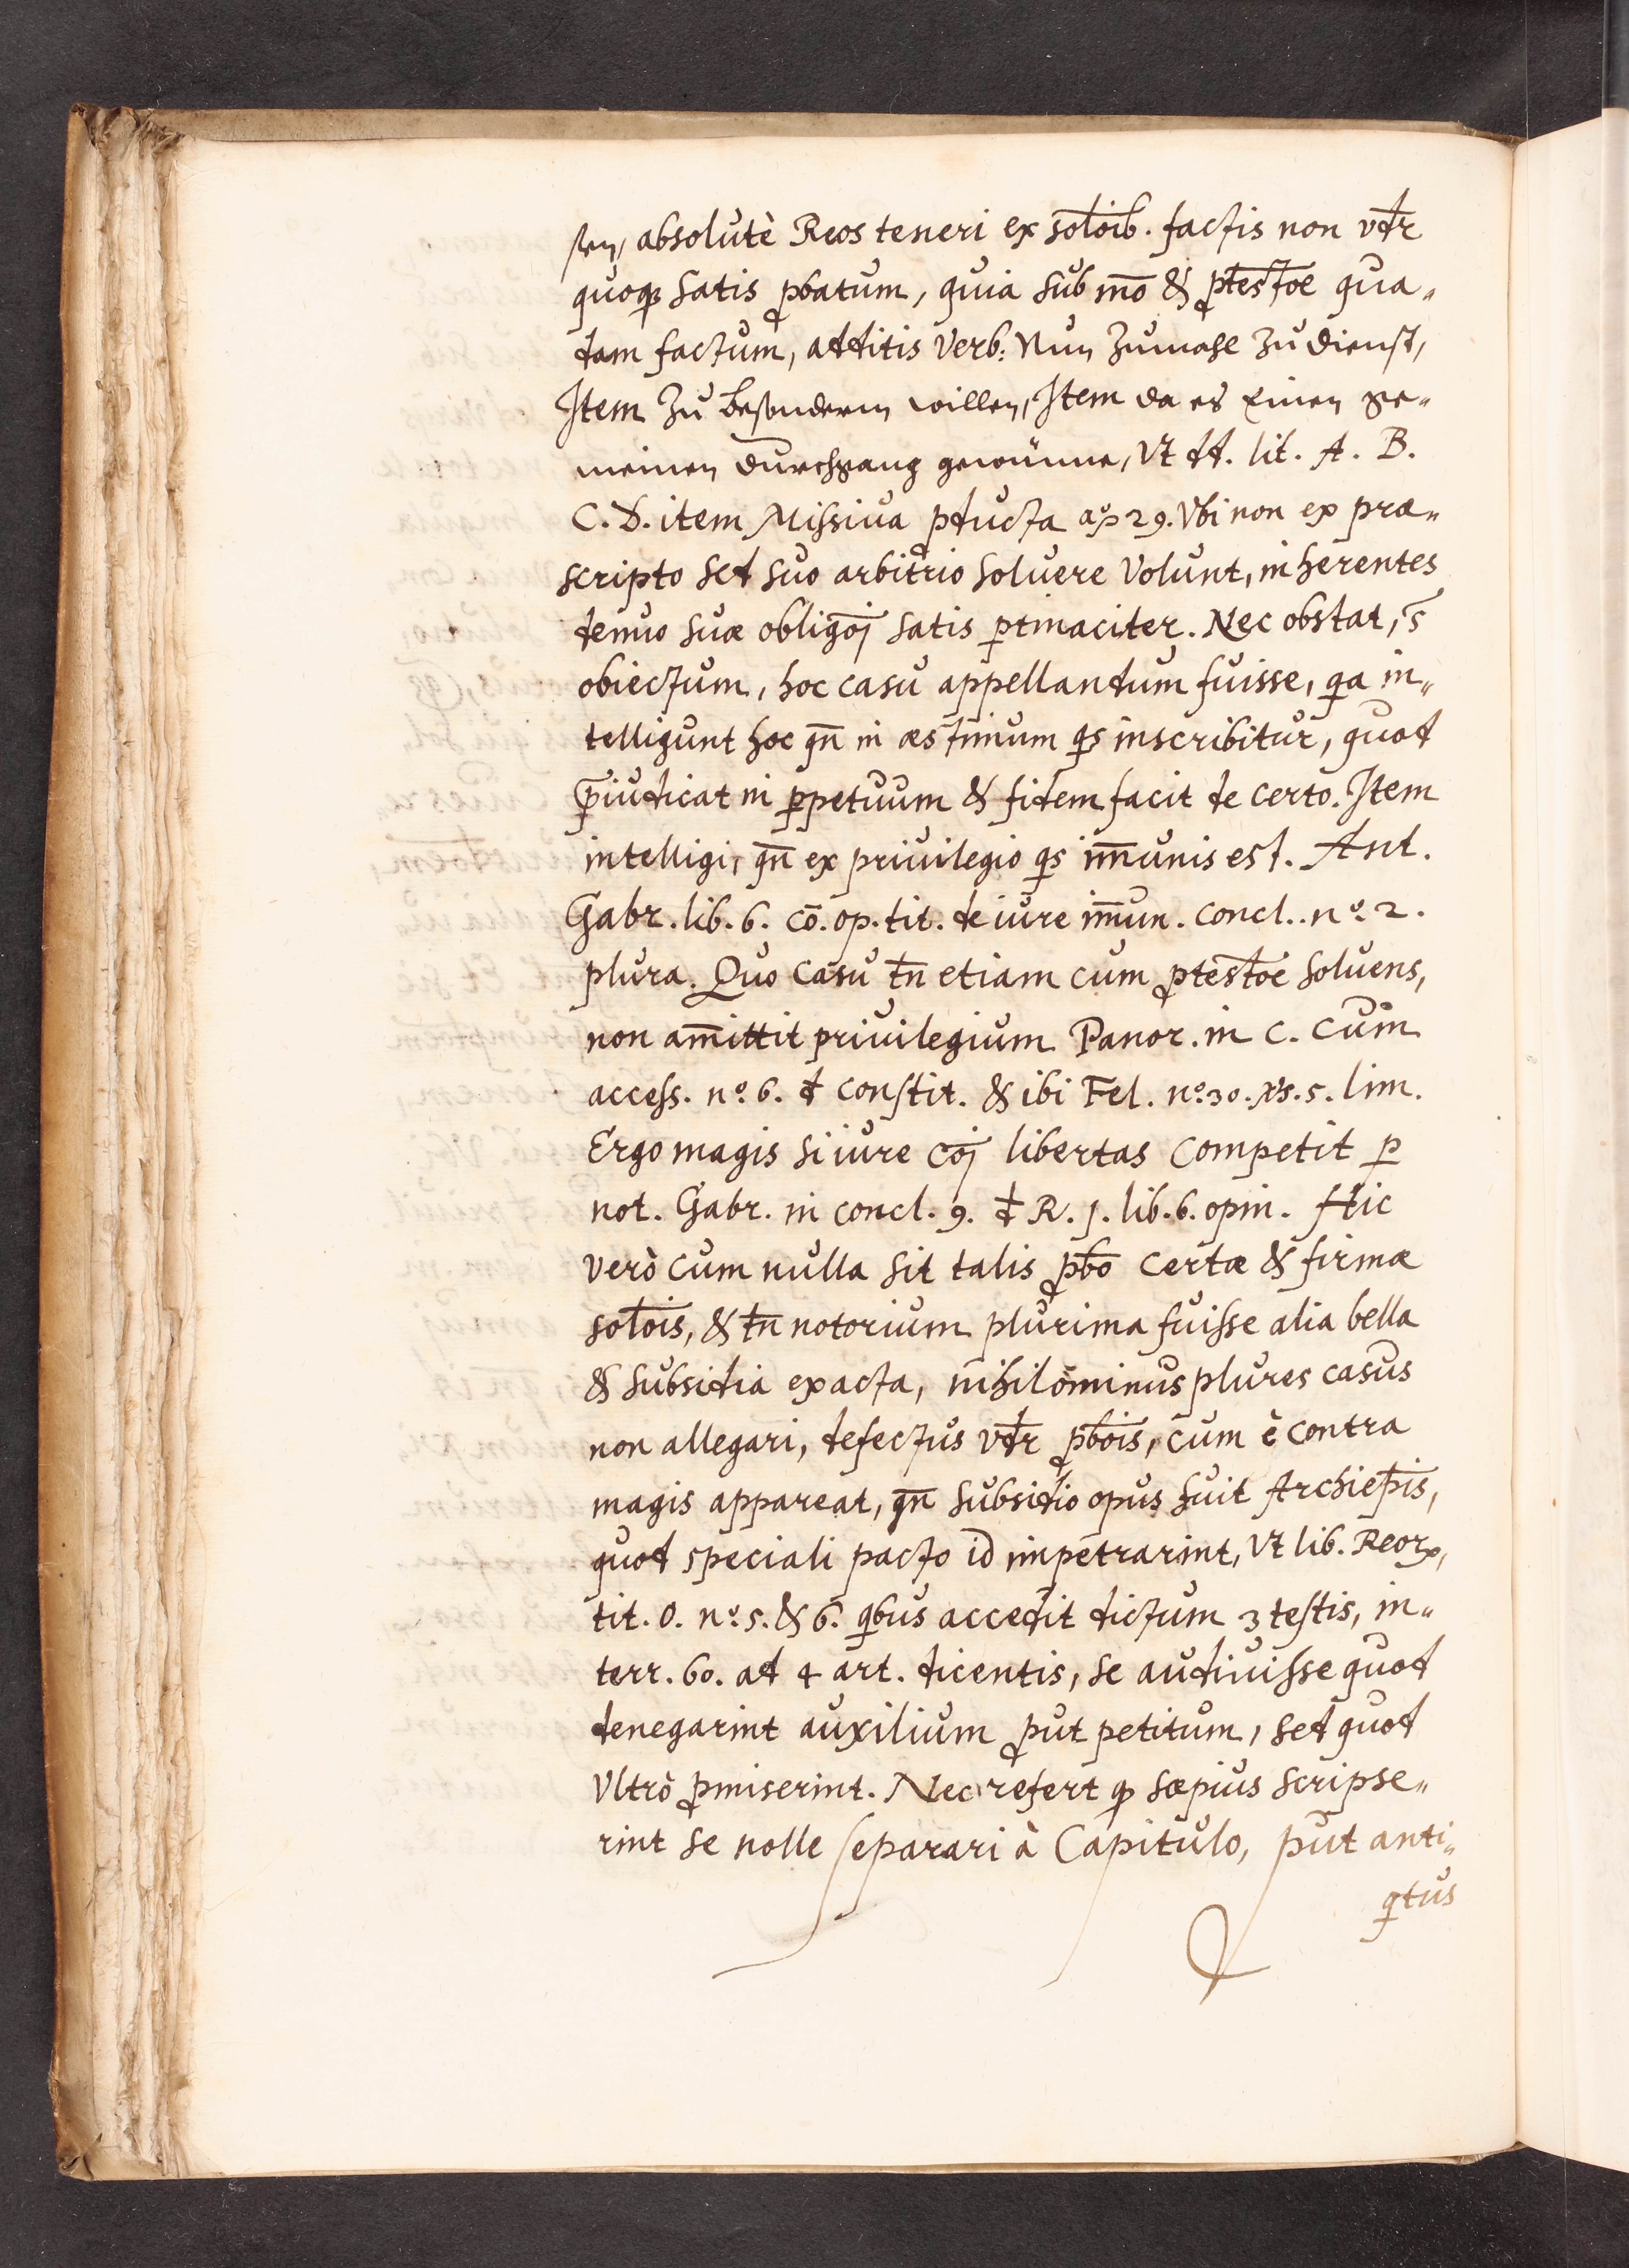 sen, absolutè Reos teneri ex sol̄oīb. factis non vd̄r
quoqꝫ satis ꝓbatum, quia sub mōo & ꝓtest̄oe qua„
dam factum, additis verb: Nun Zumahl Zu dienst,
Item Zu besonderm willen, Item da es Einen ge„
meinen durchgang gewünne, Vt dd. lit. A. B.
C. D. item Missiua ꝓducta aō 29. Vbi non ex præ„
scripto sed suo arbitrio soluere Volunt, inherentes
denuo suæ obliḡoj satis ꝑtinaciter. Nec obstat,
obiectum, hoc casu appellandum fuisse, qa in„
telligunt hoc qn̄ in æstimum qs inscribitur, quod
p̄iudicat in ꝑpetuum & fidem facit de certo. Item
intelligi, qn̄ ex priuilegio qs im̄unis est. Ant.
Gabr. lib. 6. cō. op. tit. de iure im̄un. concl.. nº. 2.
plura. Quo casu tn̄ etiam cum ꝓtest̄oe soluens,
non am̄ittit priuilegium Panor. in c. cum
access. nº. 6. d constit. & ibi Fel. nº. 30. vs. 5. lim.
Ergo magis si iure cōj libertas competit ꝑ
not. Gabr. in concl. 9. d R. J. lib. 6. opin. Hic
verò cum nulla sit talis ꝓb̄o certæ & firmæ
sol̄ois, & tn̄ notorium plurima fuisse alia bella
& subsidia exacta, nihilominus plures casus
non allegari, defectus vd̄r ꝓb̄ois, cum è contra
magis appareat, qn̄ subsidio opus fuit Archiep̄is,
quod speciali pacto id impetrarint, Vt lib. Reoꝝ,
tit. O. nº. 5. & 6. qbus accedit dictum 3 testis, in„
terr. 60. ad 4 art. dicentis, se audiuisse quod
denegarint auxilium ꝓut petitum, sed quod
Vltrò ꝓmiserint. Nec refert ꝙ sæpius scripse„
rint se nolle separari à Capitulo, ꝓut anti„
qtus